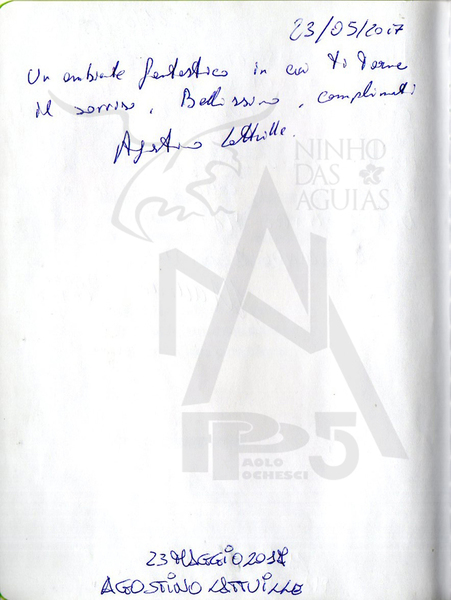 23/05/2017
Un ambiente fantastico in cui ti torna
il sorriso, Bellissimo, complimenti
Agostino Lattuille.
NINHO
DAS
AGUIAS
PP5
PAOLO
POCHESCI
23 MAGGIO 2017
AGOSTINO LATTUILLE